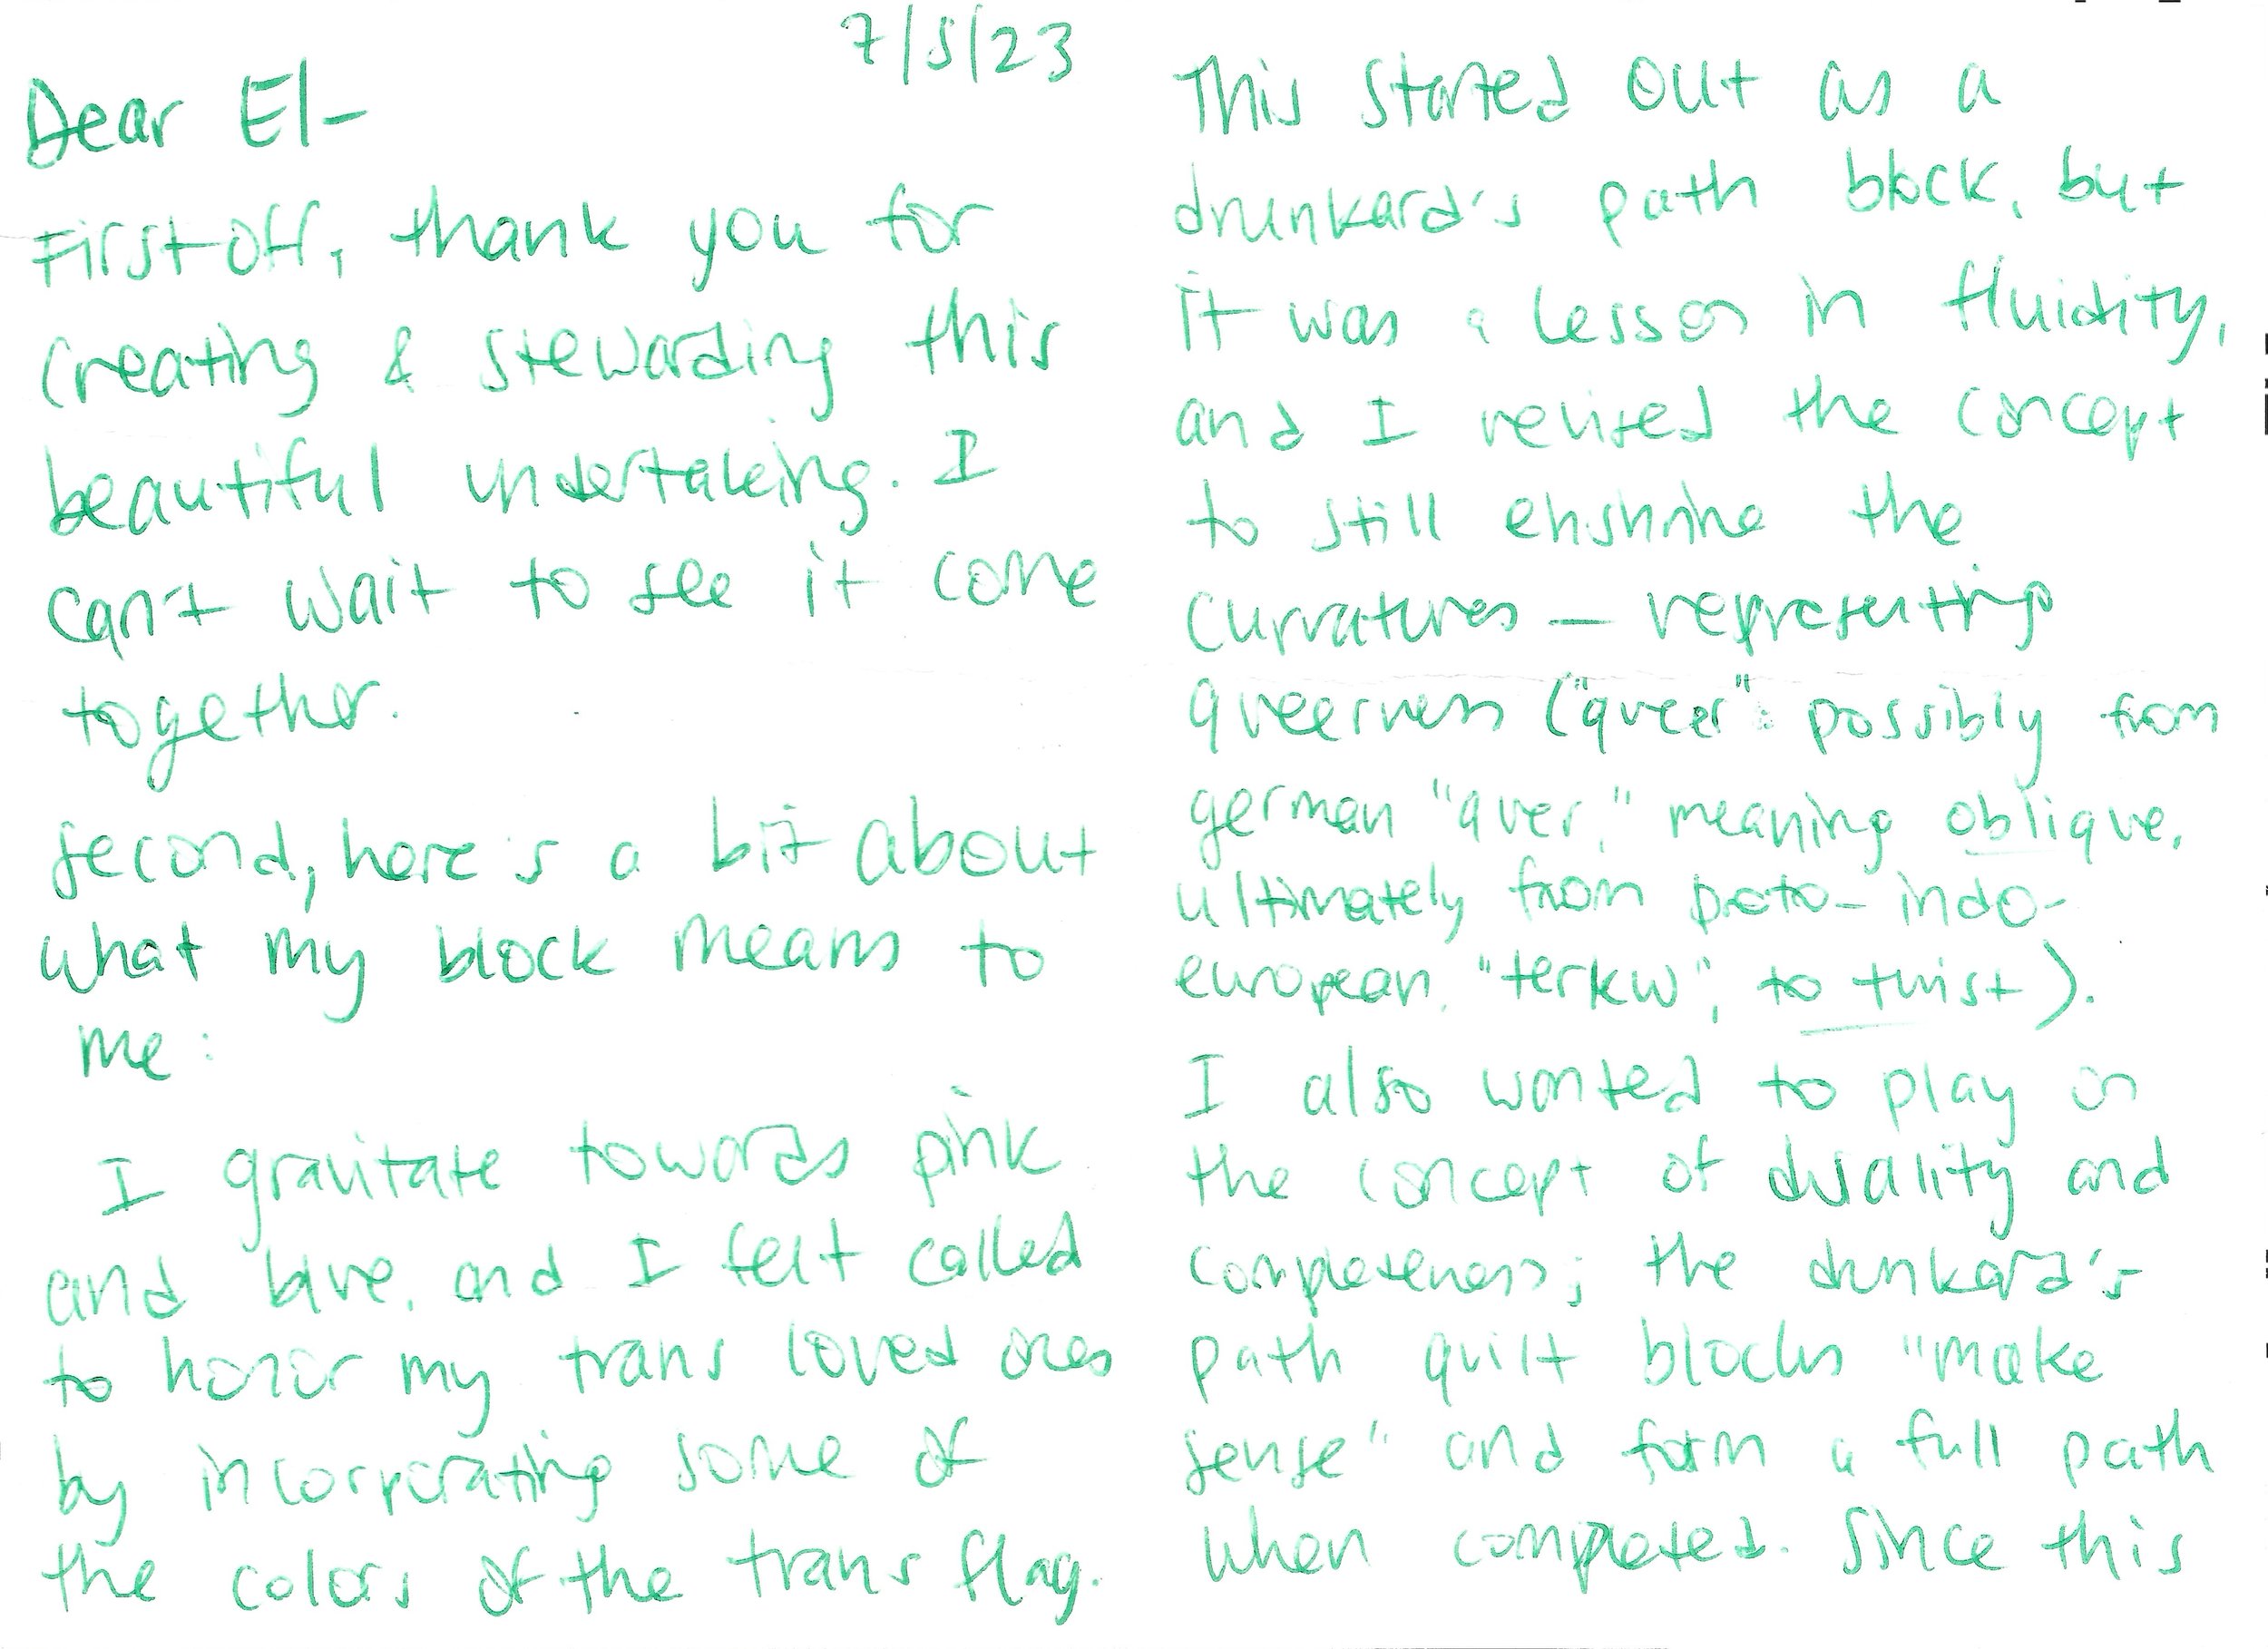 7/5/23
Dear El-
First off, thank you for
creating & stewarding this
beautiful undertaking. I
can't wait to see it come
together.
Second, here's a bit about
what my block means to
me:
I gravitate towards pink
and blue, and I felt called
to honor my trans loved ones
by incorporating some of
the colors of the trans flag.
This started out as a
drunkard's path block, but
it was a lesson in fluidity,
and I revised the concept
to still enshrine the
curvatures — representing
queerness ("queer": possibly from
german "quer," meaning oblique,
ultimately from proto-indo-
european, "terkw", to twist).
I also wanted to play on
the concept of duality and
completeness; the drunkard's
path quilt blocks "make
sense" and form a full path
when completed. Since this